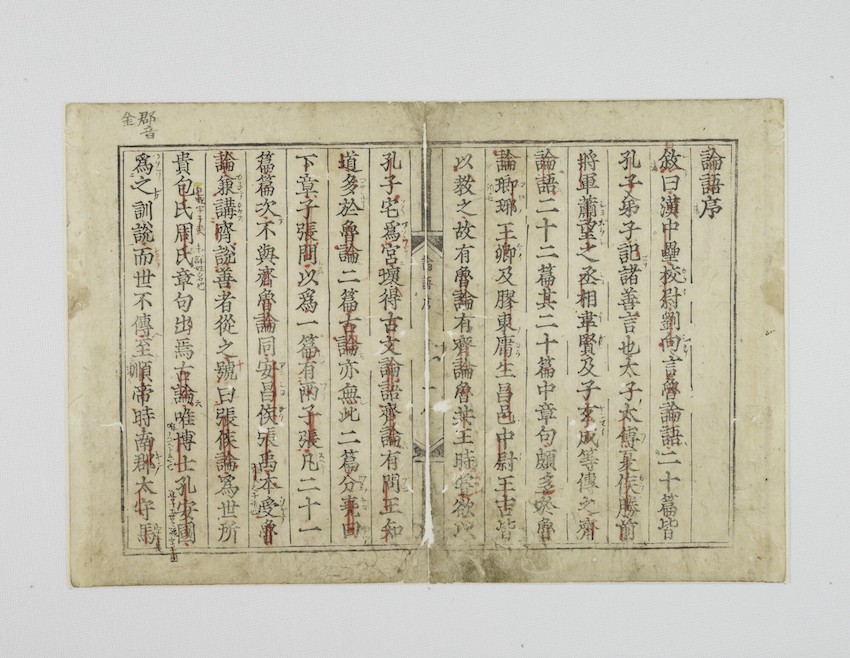 論語序
敘曰漢中壘校尉劉向言魯論語二十篇皆
孔子弟子記諸善言也太子太傅夏侯勝前
將軍蕭望之丞相韋賢及子玄成等傳之齊
論語二十二篇其二十篇中章句頗多於魯
論瑯琊王卿及膠東庸生昌邑中尉王吉皆
以教之故有魯論有齊論魯恭王時嘗欲以
論語序
一
孔子宅爲宮壞得古文論語齊論有問王知
道多於魯論二篇古論亦無此二篇分堯曰
下章子張問以爲一篇有兩子張凡二十一
篇篇次不與齊魯論同安昌侯張禹本受魯
論兼講齊說善者從之號曰張侯論爲世所
貴包氏周氏章句出焉古論唯博士孔安國
爲之訓說而世不傳至順帝時南郡太守馬
郡音
金